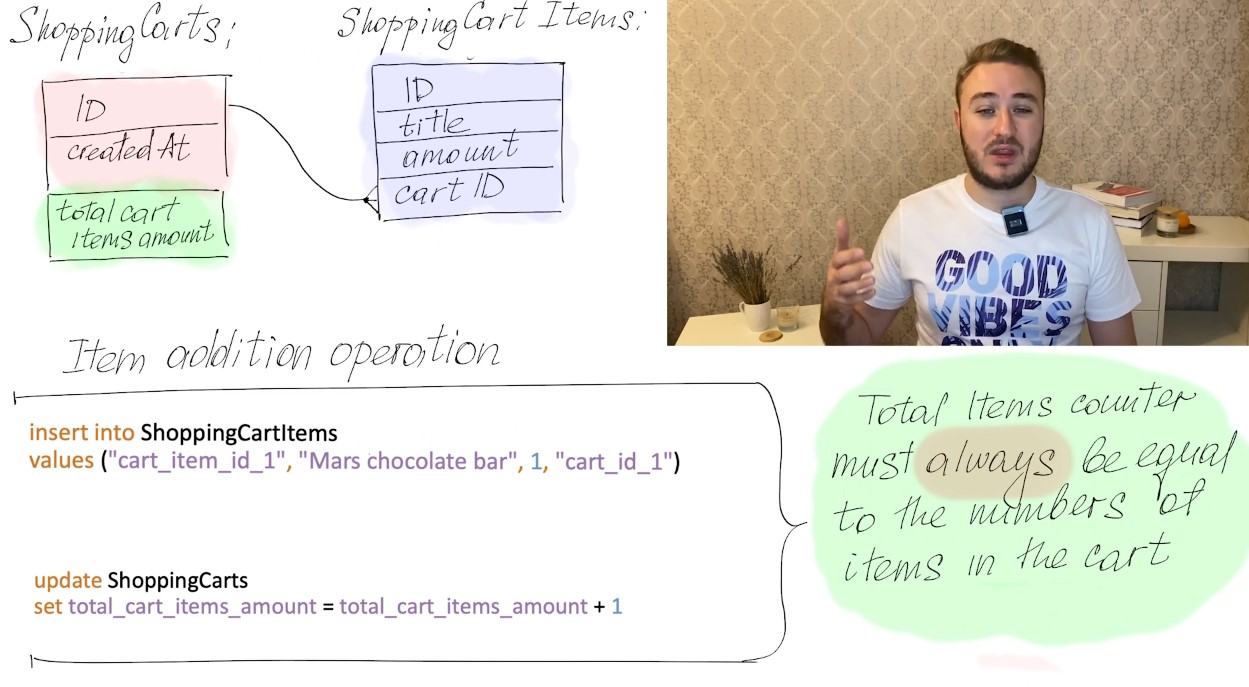 ShoppingCarts;
ID
createdAt
total cart
items amount
ShoppingCart Items:
ID
title
amount
cart ID
GOOD
VIBES
ONLY
Item addition operation
insert into ShoppingCartItems
values ("cart_item_id_1", "Mars chocolate bar", 1, "cart_id_1")
update ShoppingCarts
set total_cart_items_amount = total_cart_items_amount + 1
Total Items counter
must always be equal
to the numbers of
items in the cart